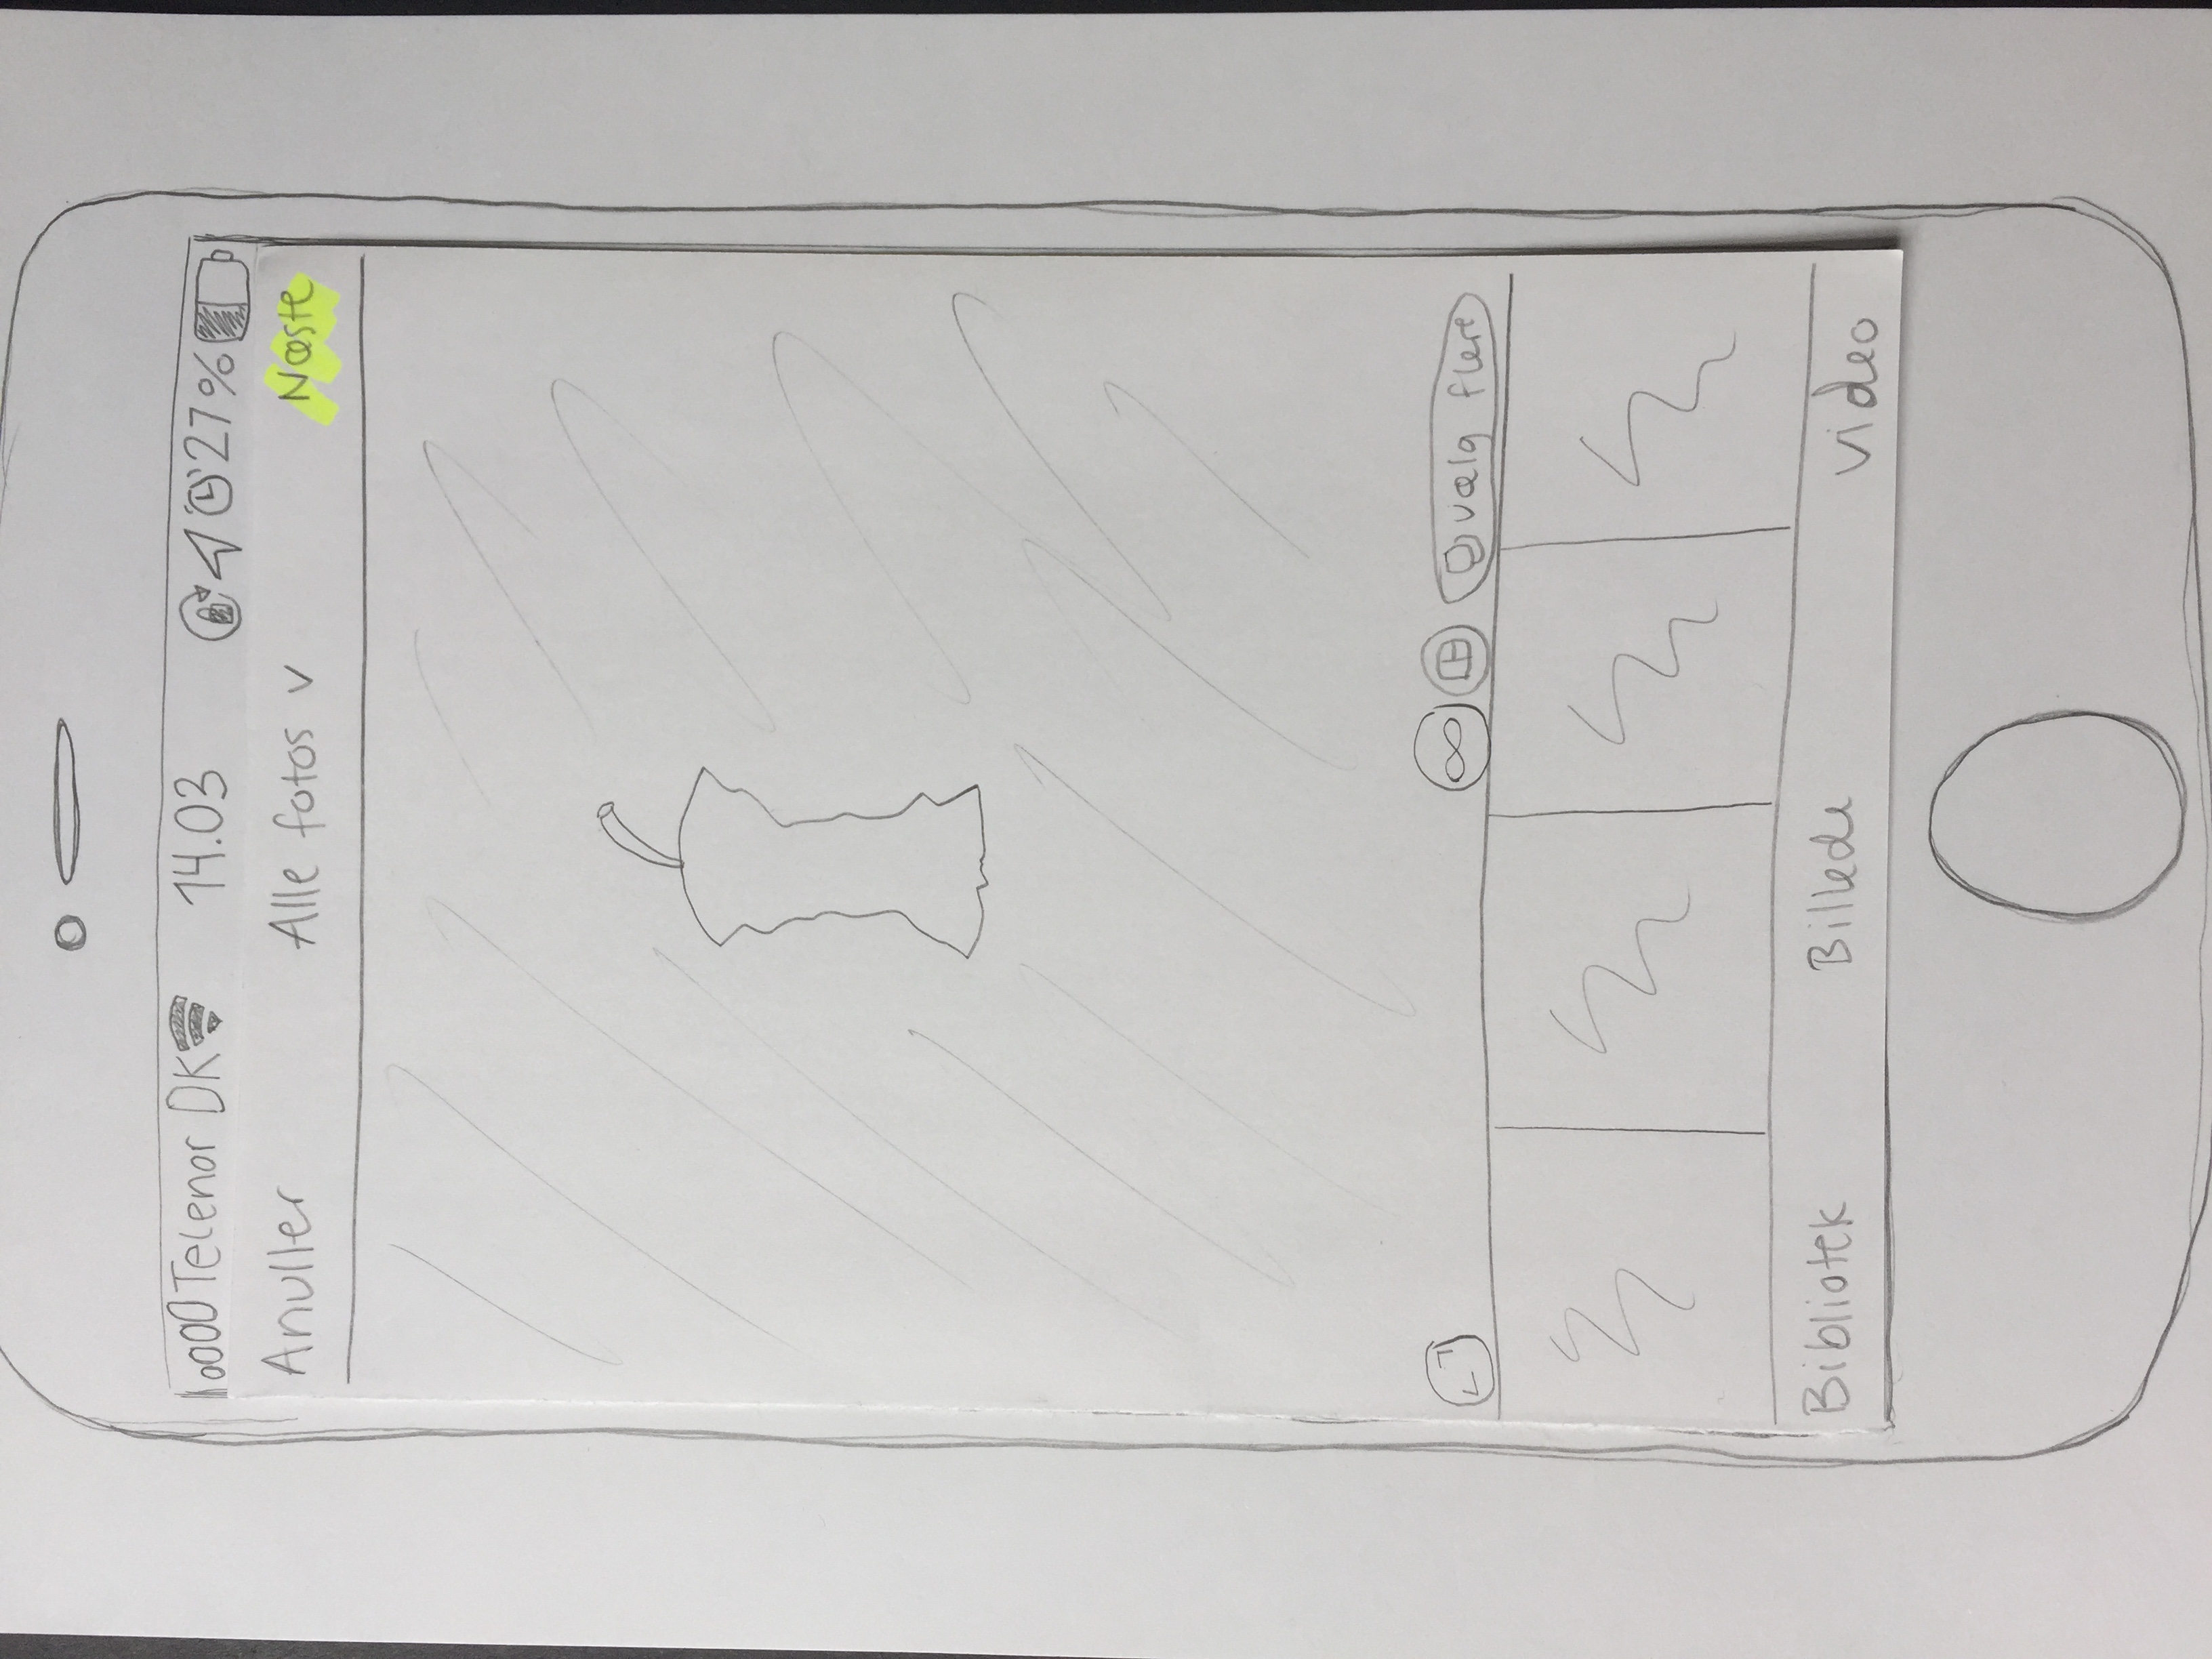 Telenor DK 14.03 27%
Anuller Alle fotos v Næste
vælg flere
Bibliotek Billede video